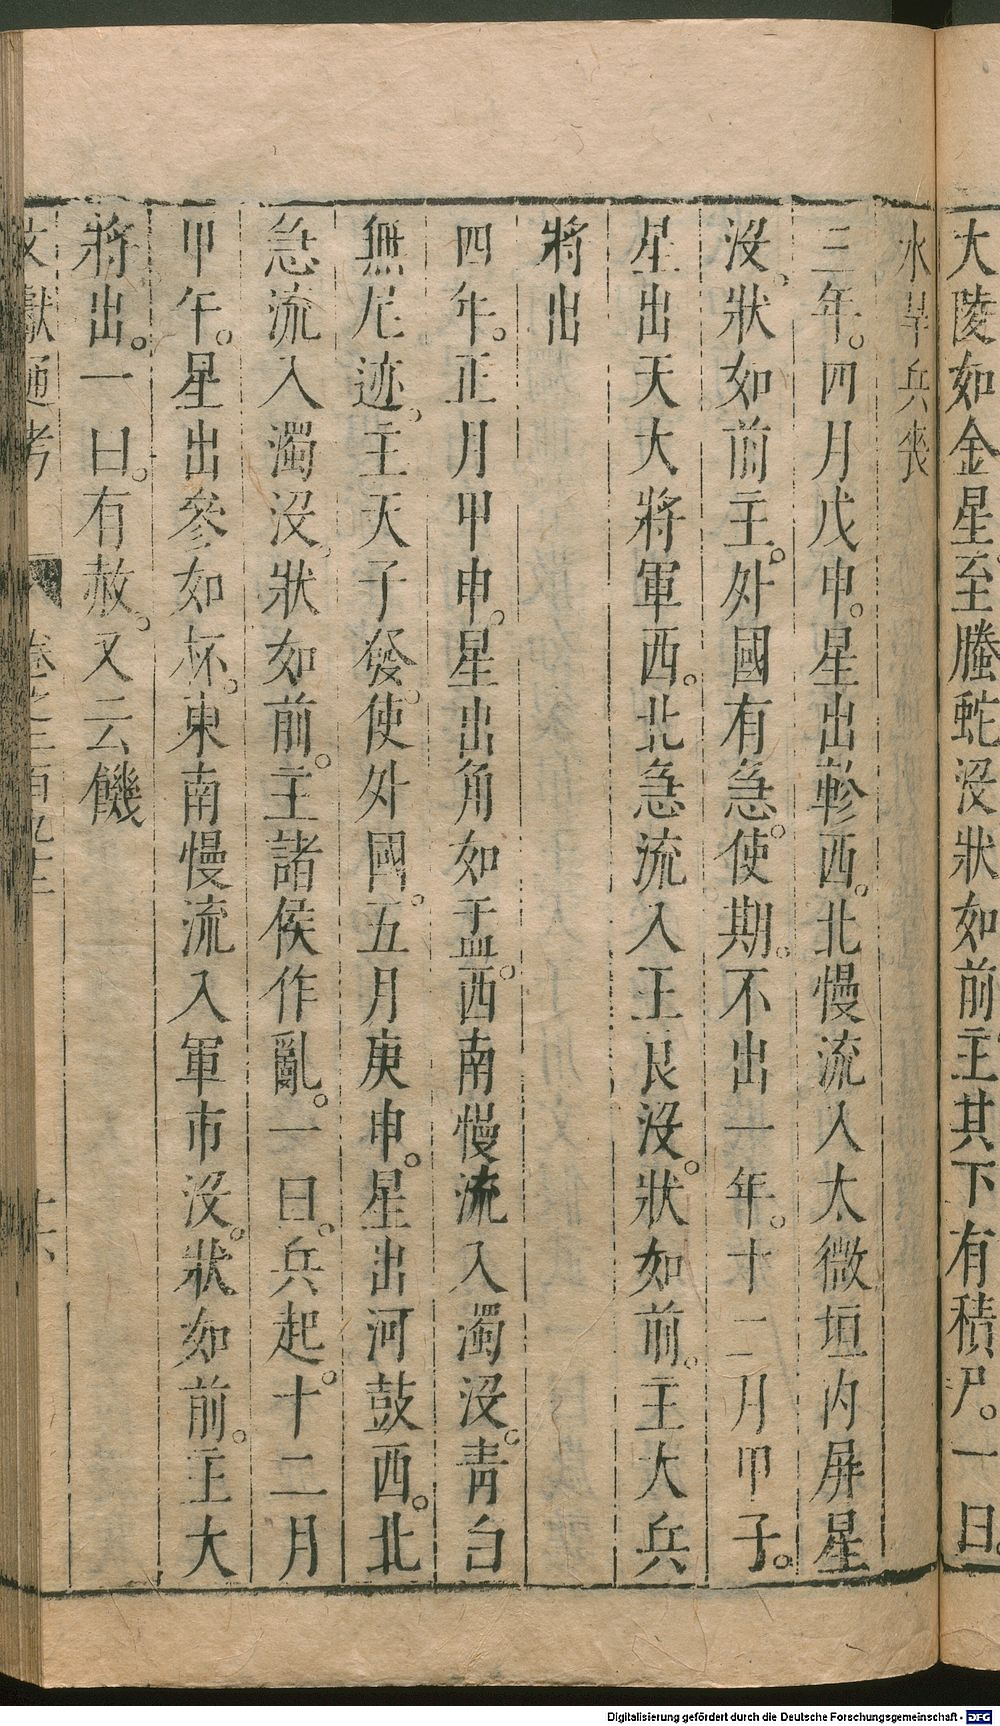 大陵如金星至螣蛇沒狀如前主其下有積尸。一曰。
水旱兵喪
三年。四月戊申。星出軫西。北慢流入太微垣內屏星
沒。狀如前主。外國有急。使期。不出一年。十二月甲子。
星出天大將軍西。北急流入王良沒。狀如前。主大兵
將出
四年。正月甲申。星出角如盂。西南慢流入濁沒。青白
無尾迹。主天子發。使外國。五月庚申。星出河鼓西。北
急流入濁沒。狀如前。主諸侯作亂。一曰。兵起。十二月
甲午。星出參如杯。東南慢流入軍市沒。狀如前。主大
將出。一曰。有赦。又云饑
文獻通考 卷之二百九十二 十六
Digitalisierung gefördert durch die Deutsche Forschungsgemeinschaft - DFG